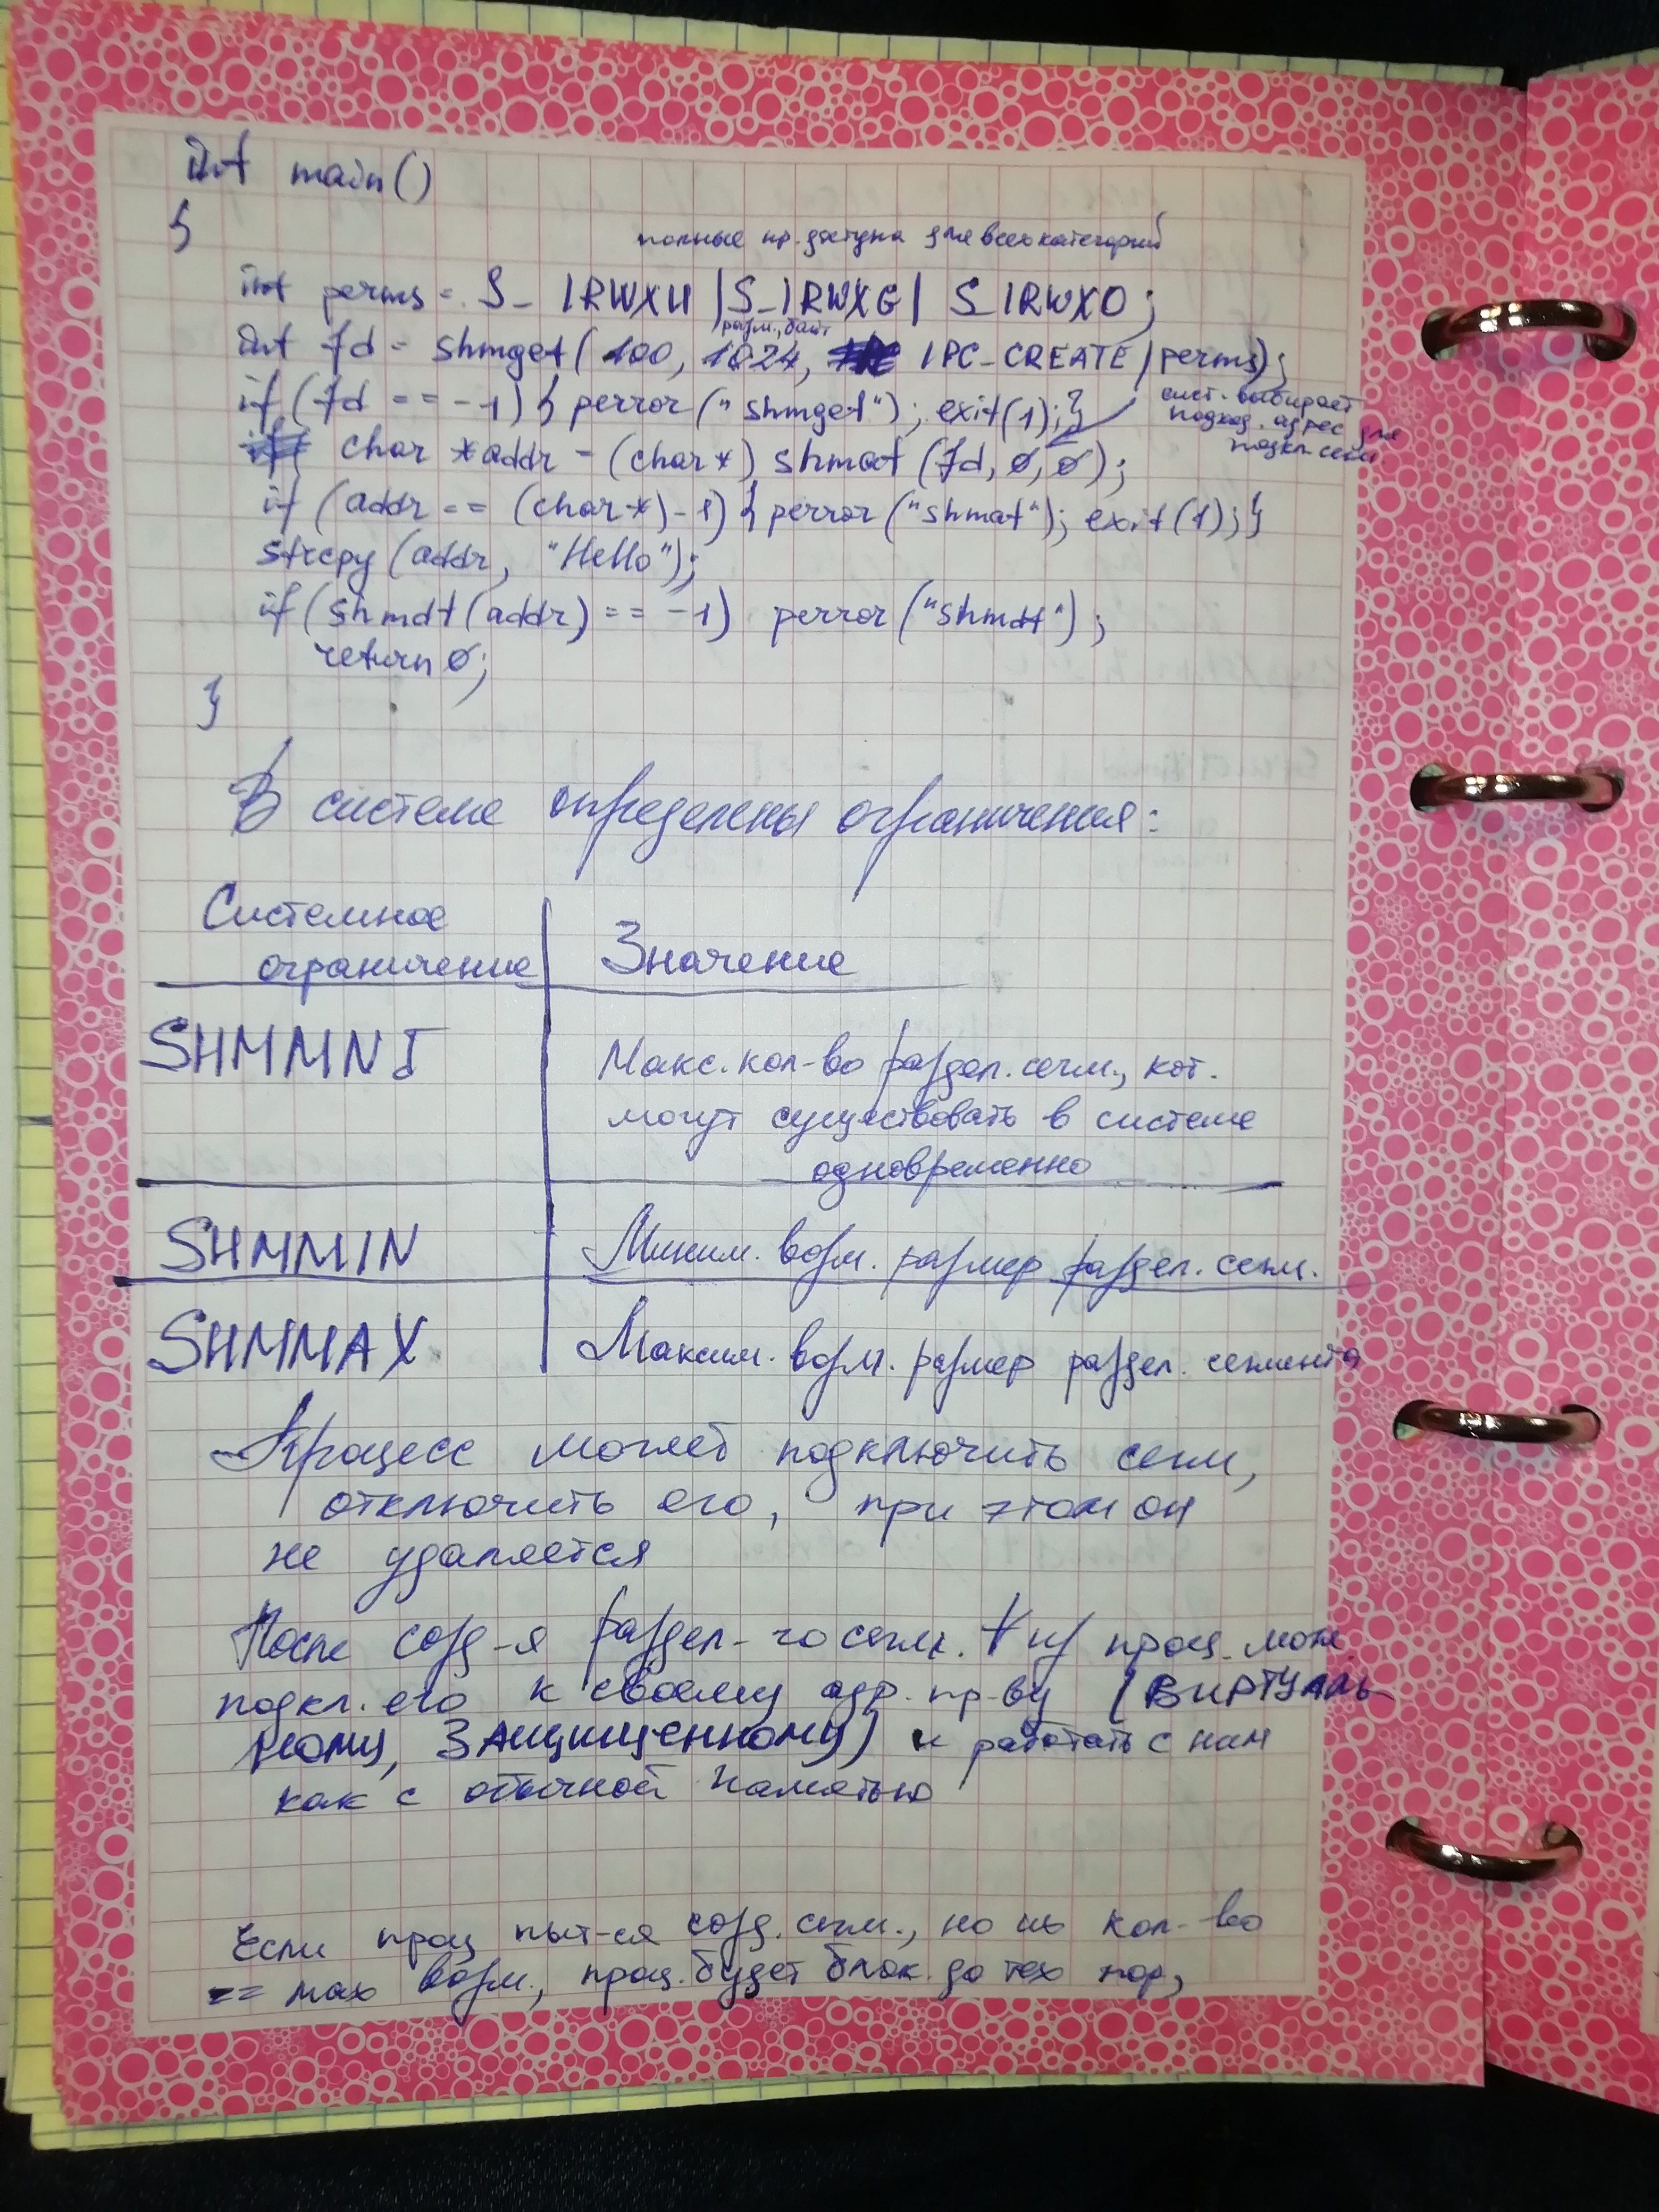 int main()
{
полные пр. доступа для всех категорий
int perms = S_IRWXU | S_IRWXG | S_IRWXO;
разм., байт
int fd = shmget(100, 1024, IPC_CREATE | perms);
if (fd == -1) { perror("shmget"); exit(1); }
сист. выбирает
подход. адрес для
подкл. сегм
char *addr = (char*) shmat(fd, 0, 0);
if (addr == (char*)-1) { perror("shmat"); exit(1); }
strcpy(addr, "Hello");
if (shmdt(addr) == -1) perror("shmdt");
return 0;
}
В системе определены ограничения:
Системное
ограничение
Значение
SHMMNI
Макс. кол-во раздел. сегм., кот.
могут существовать в системе
одновременно
SHMMIN
Миним. возм. размер раздел. сегм.
SHMMAX
Максим. возм. рзмер раздел. сегмента
Процесс может подключить сегм,
отключить его, при этом он
не удаляется
После созд-я раздел-го сегм. ∀ из проц. мож.
подкл. его к своему адр. пр-ву (виртуаль-
ному, защищенному) и работать с ним
как с обычной памятью
Если проц пыт-ся созд. сегм., но их кол-во
== max возм., проц. будет блок. до тех пор,